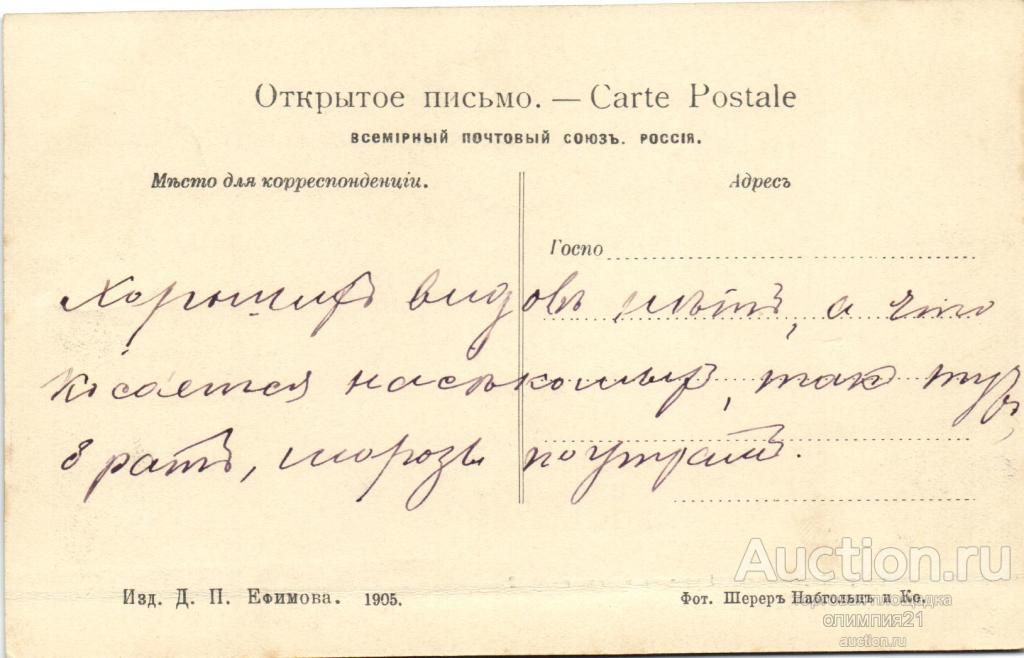 Открытое письмо. — Carte Postale
ВСЕМІРНЫЙ ПОЧТОВЫЙ СОЮЗЪ. РОССІЯ.
Мѣсто для корреспонденціи.
Адресъ
Госпо
Хорошихъ видовъ нѣтъ, а что
касается насѣкомыхъ, так тутъ,
братъ, морозы по утрамъ.
Изд. Д. П. Ефимова. 1905.
Фот. Шереръ Набгольцъ и Ко.
Auction.ru
торговая площадка
олимпия21
auction.ru